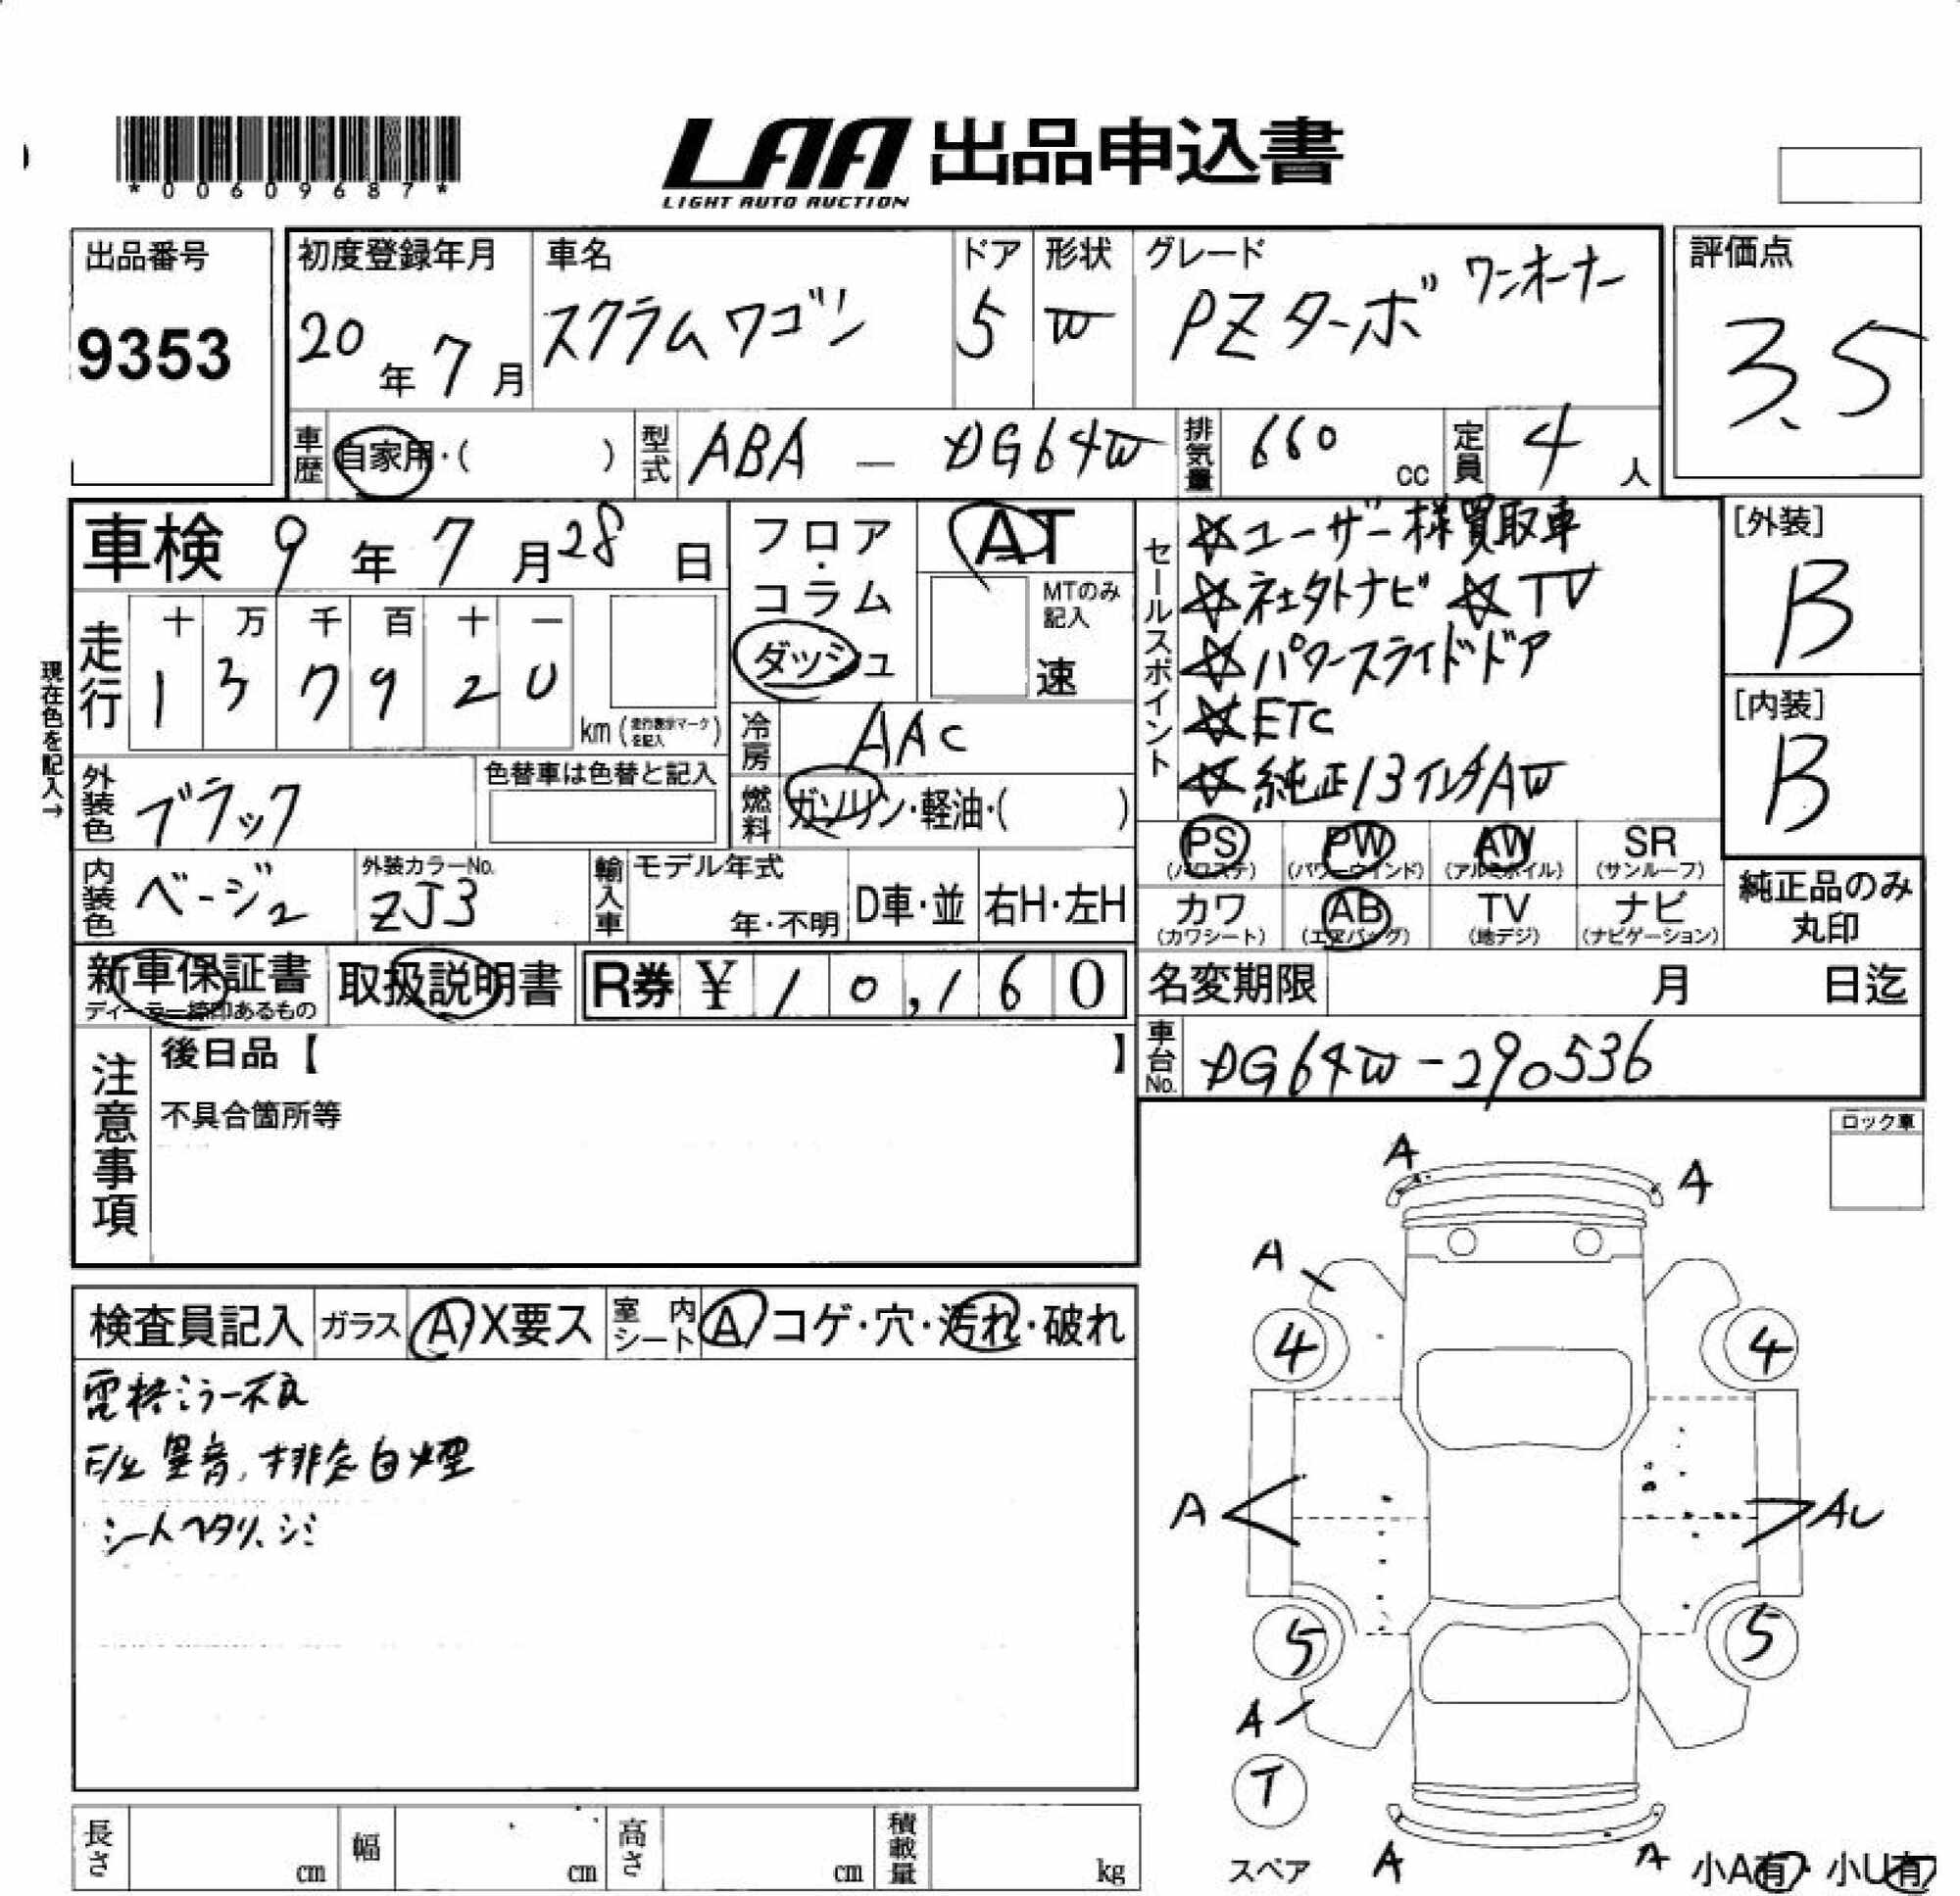 *00609687*
LAA 出品申込書
LIGHT AUTO AUCTION
出品番号
9353
初度登録年月
20年7月
車名
スクラムワゴン
ドア
5
形状
W
グレード
PZターボ ワンオーナー
評価点
3.5
車歴 自家用・( )
型式 ABA - DG64W
排気量 660 cc
定員 4 人
車検 9年7月28日
現在色を記入→
走行
十 万 千 百 十 一
1 3 7 9 2 0
km (走行表示マークを記入)
フロア・コラム
ダッシュ
AT
MTのみ記入
速
冷房 AAC
燃料 ガソリン・軽油・( )
外装色 ブラック
色替車は色替と記入
内装色 ベージュ
外装カラーNo.
ZJ3
輸入車
モデル年式
年・不明
D車・並
右H・左H
セールスポイント
☆ユーザー様買取車
☆社外ナビ ☆TV
☆パワースライドドア
☆ETC
☆純正13インチAW
[外装]
B
[内装]
B
PS (パワステ)
PW (パワーウインド)
AW (アルミホイル)
SR (サンルーフ)
カワ (カワシート)
AB (エアバッグ)
TV (地デジ)
ナビ (ナビゲーション)
純正品のみ
丸印
新車保証書
ディーラー締印あるもの
取扱説明書
R券 ¥10,160
名変期限 月 日迄
車台No. DG64W-290536
注意事項
後日品【 】
不具合箇所等
ロック車
検査員記入
ガラス A X要ス
室内シート A コゲ・穴・汚れ・破れ
電格ミラー不良
E/G 異音、排気白煙
シートヘタリ、シミ
A A
A
4 4
A AU
5 5
A
T
スペア
A A
小A有 ・ 小U有
長さ cm
幅 cm
高さ cm
積載量 kg